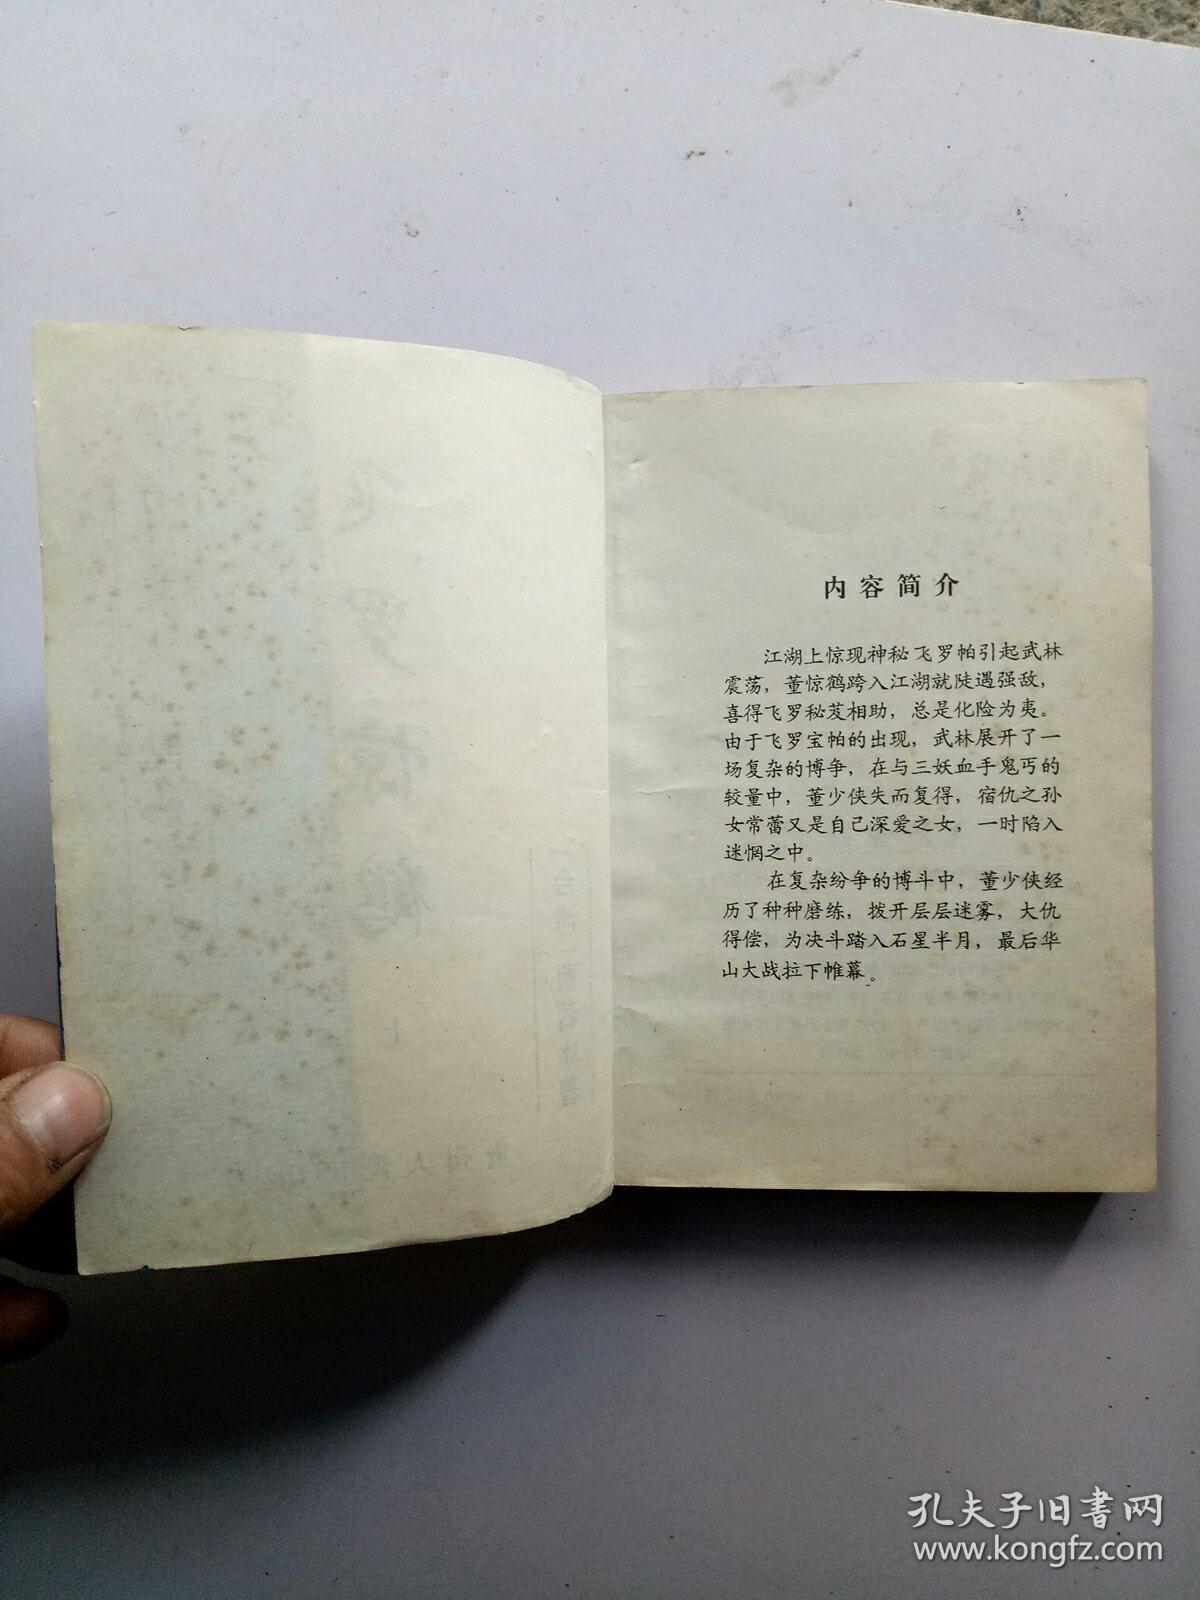 内容简介
江湖上惊现神秘飞罗帕引起武林
震荡，董惊鹤跨入江湖就陡遇强敌，
喜得飞罗秘芨相助，总是化险为夷。
由于飞罗宝帕的出现，武林展开了一
场复杂的博争，在与三妖血手鬼丐的
较量中，董少侠失而复得，宿仇之孙
女常蕾又是自己深爱之女，一时陷入
迷惘之中。
在复杂纷争的博斗中，董少侠经
历了种种磨练，拨开层层迷雾，大仇
得偿，为决斗踏入石星半月，最后华
山大战拉下帷幕。
孔夫子旧书网
www.kongfz.com